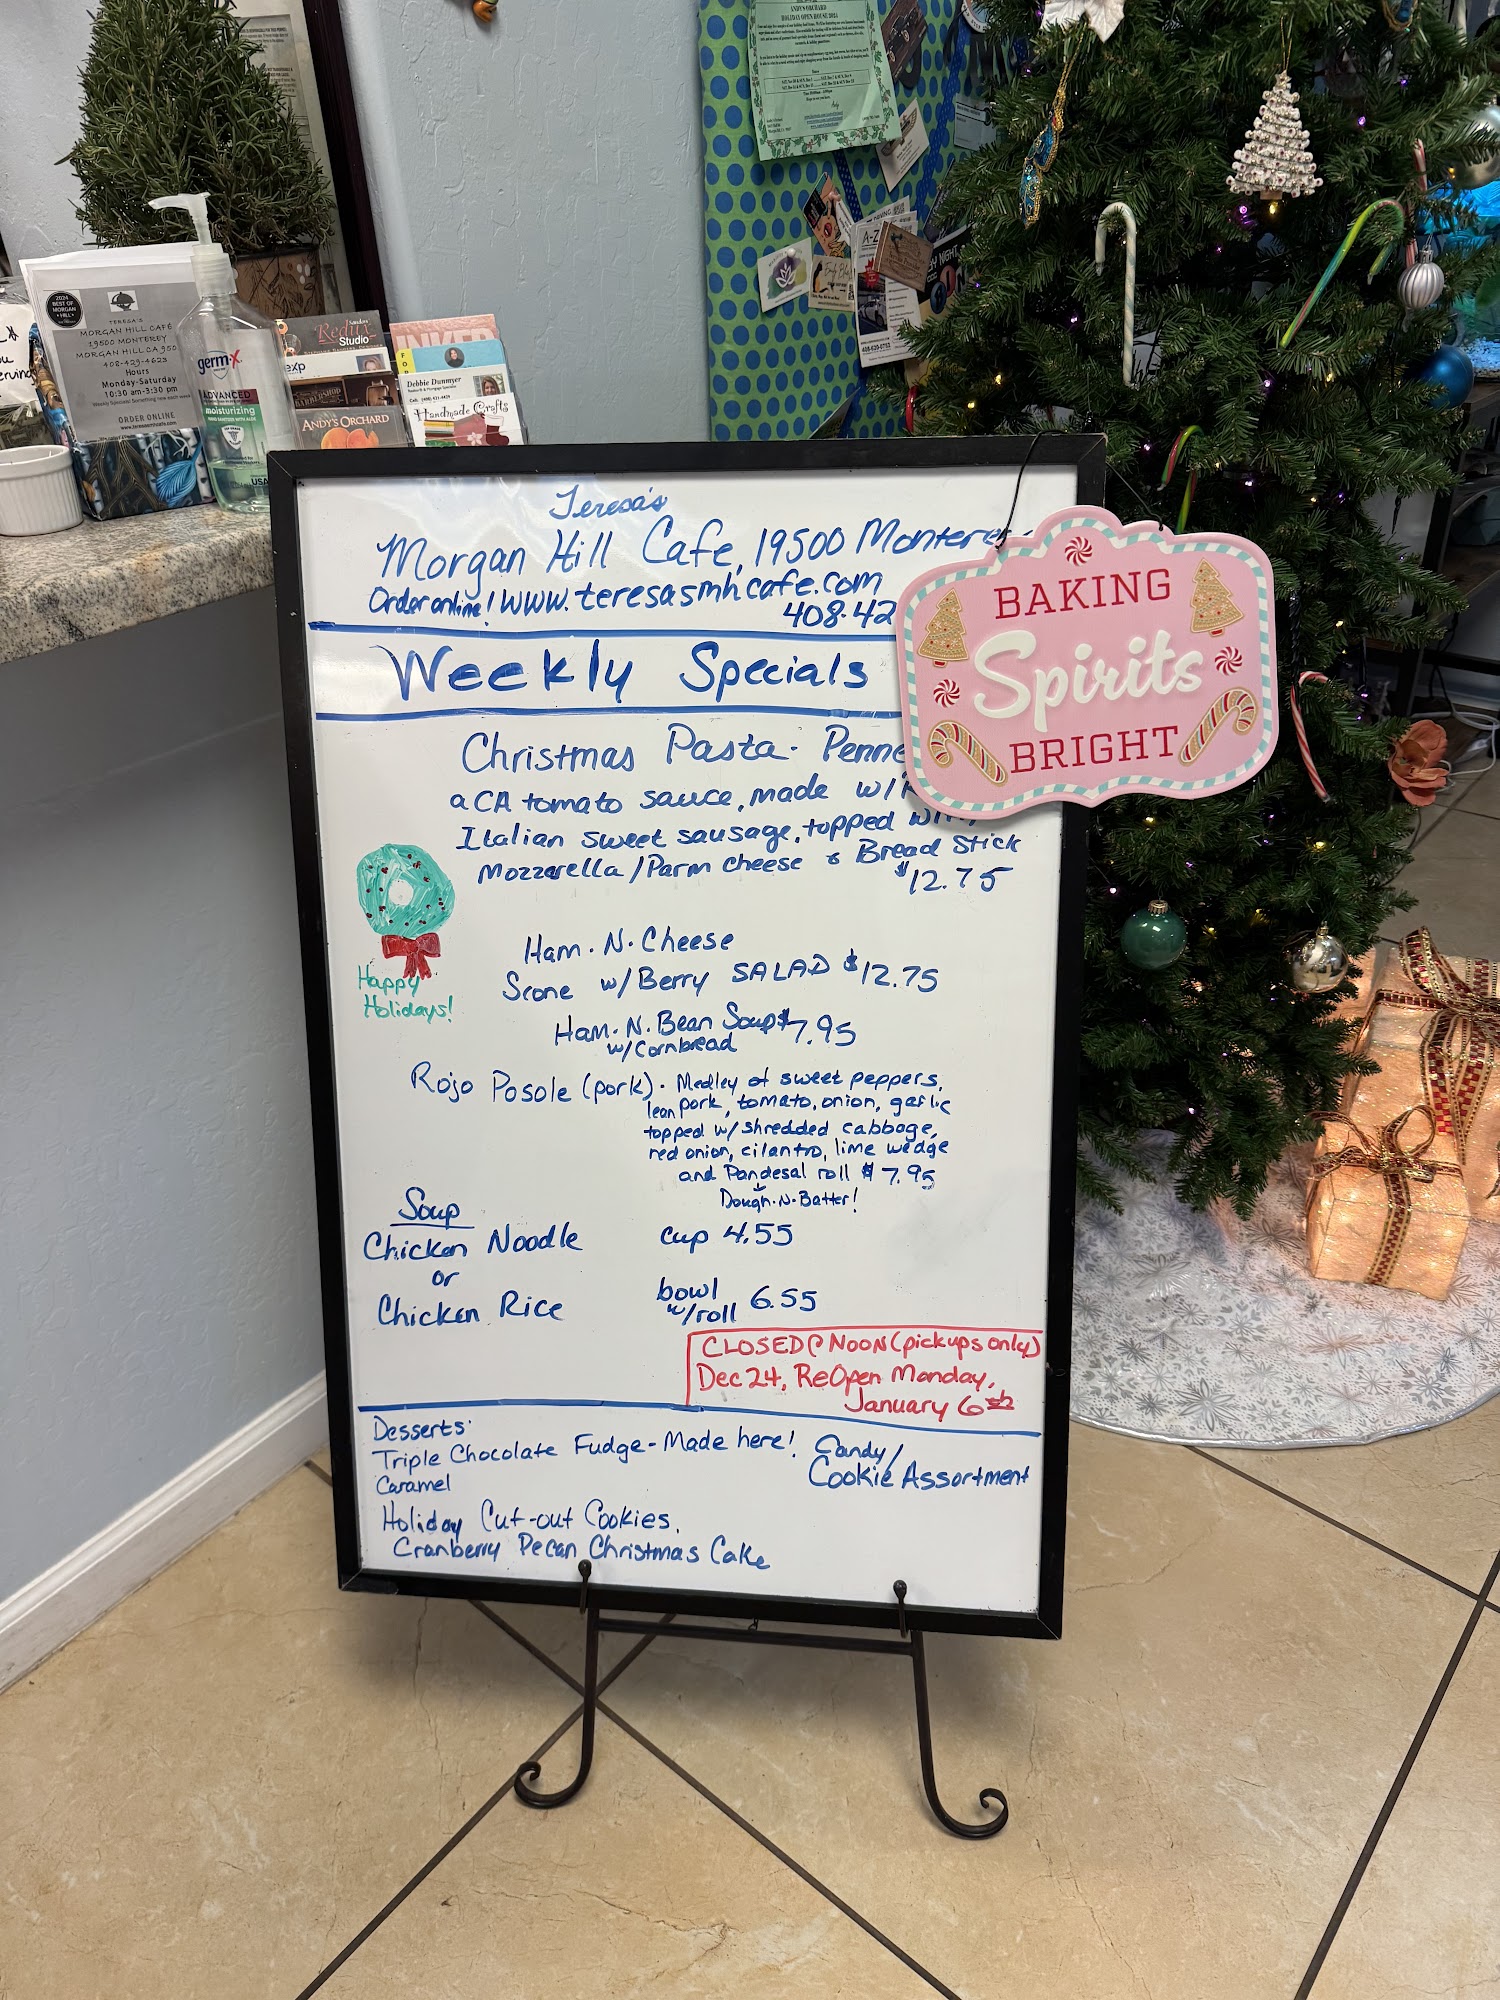 ANDY'S ORCHARD
HOLIDAY OPEN HOUSE 2024
2024
BEST OF
MORGAN
HILL
TERESA'S
MORGAN HILL CAFÉ
19500 MONTEREY
MORGAN HILL CA 950
408-429-4623
Hours
Monday-Saturday
10:30 am-3:30 pm
Weekly Specials! Something new each week
ORDER ONLINE
www.teresasmhcafe.com
germ-x
ADVANCED
moisturizing
USA
Redux
Studio
exp
BARBERSHOP
ANDY'S ORCHARD
Debbie Dunmyer
Handmade Crafts
A-Z
Teresa's
Morgan Hill Cafe, 19500 Montere
Order online! www.teresasmhcafe.com
408-42
Weekly Specials
Christmas Pasta - Penne
a CA tomato sauce, made w/
Italian sweet sausage, topped with
Mozzarella/Parm cheese & Bread Stick
$12.75
Ham-N-Cheese
Scone w/Berry SALAD $12.75
Ham-N-Bean Soup $7.95
w/Cornbread
Rojo Posole (pork) - Medley of sweet peppers,
lean pork, tomato, onion, garlic
topped w/shredded cabbage,
red onion, cilantro, lime wedge
and Pandesal roll $7.95
Dough-N-Batter!
Happy
Holidays!
Soup
Chicken Noodle cup 4.55
or
Chicken Rice bowl 6.55
w/roll
CLOSED @ NOON (pickups only)
Dec 24, ReOpen Monday,
January 6th
Desserts:
Triple Chocolate Fudge - Made here! Candy/
Caramel Cookie Assortment
Holiday Cut-out Cookies,
Cranberry Pecan Christmas Cake
BAKING
Spirits
BRIGHT